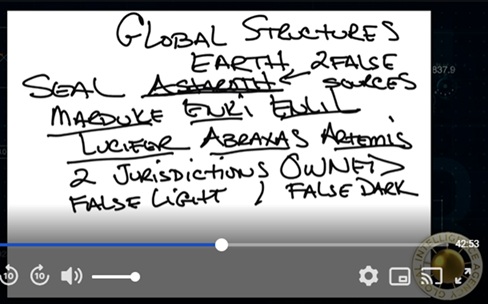 GLOBAL STRUCTURES
EARTH, 2 FALSE
SEAL ASTAROTH ← SOURCES
MARDUKE ENKI ENLIL
LUCIFER ABRAXAS ARTEMIS
2 JURISDICTIONS OWNED
FALSE LIGHT / FALSE DARK
837.9
42:53
10 10
GLOBAL INTELLIGENCE AGENCY